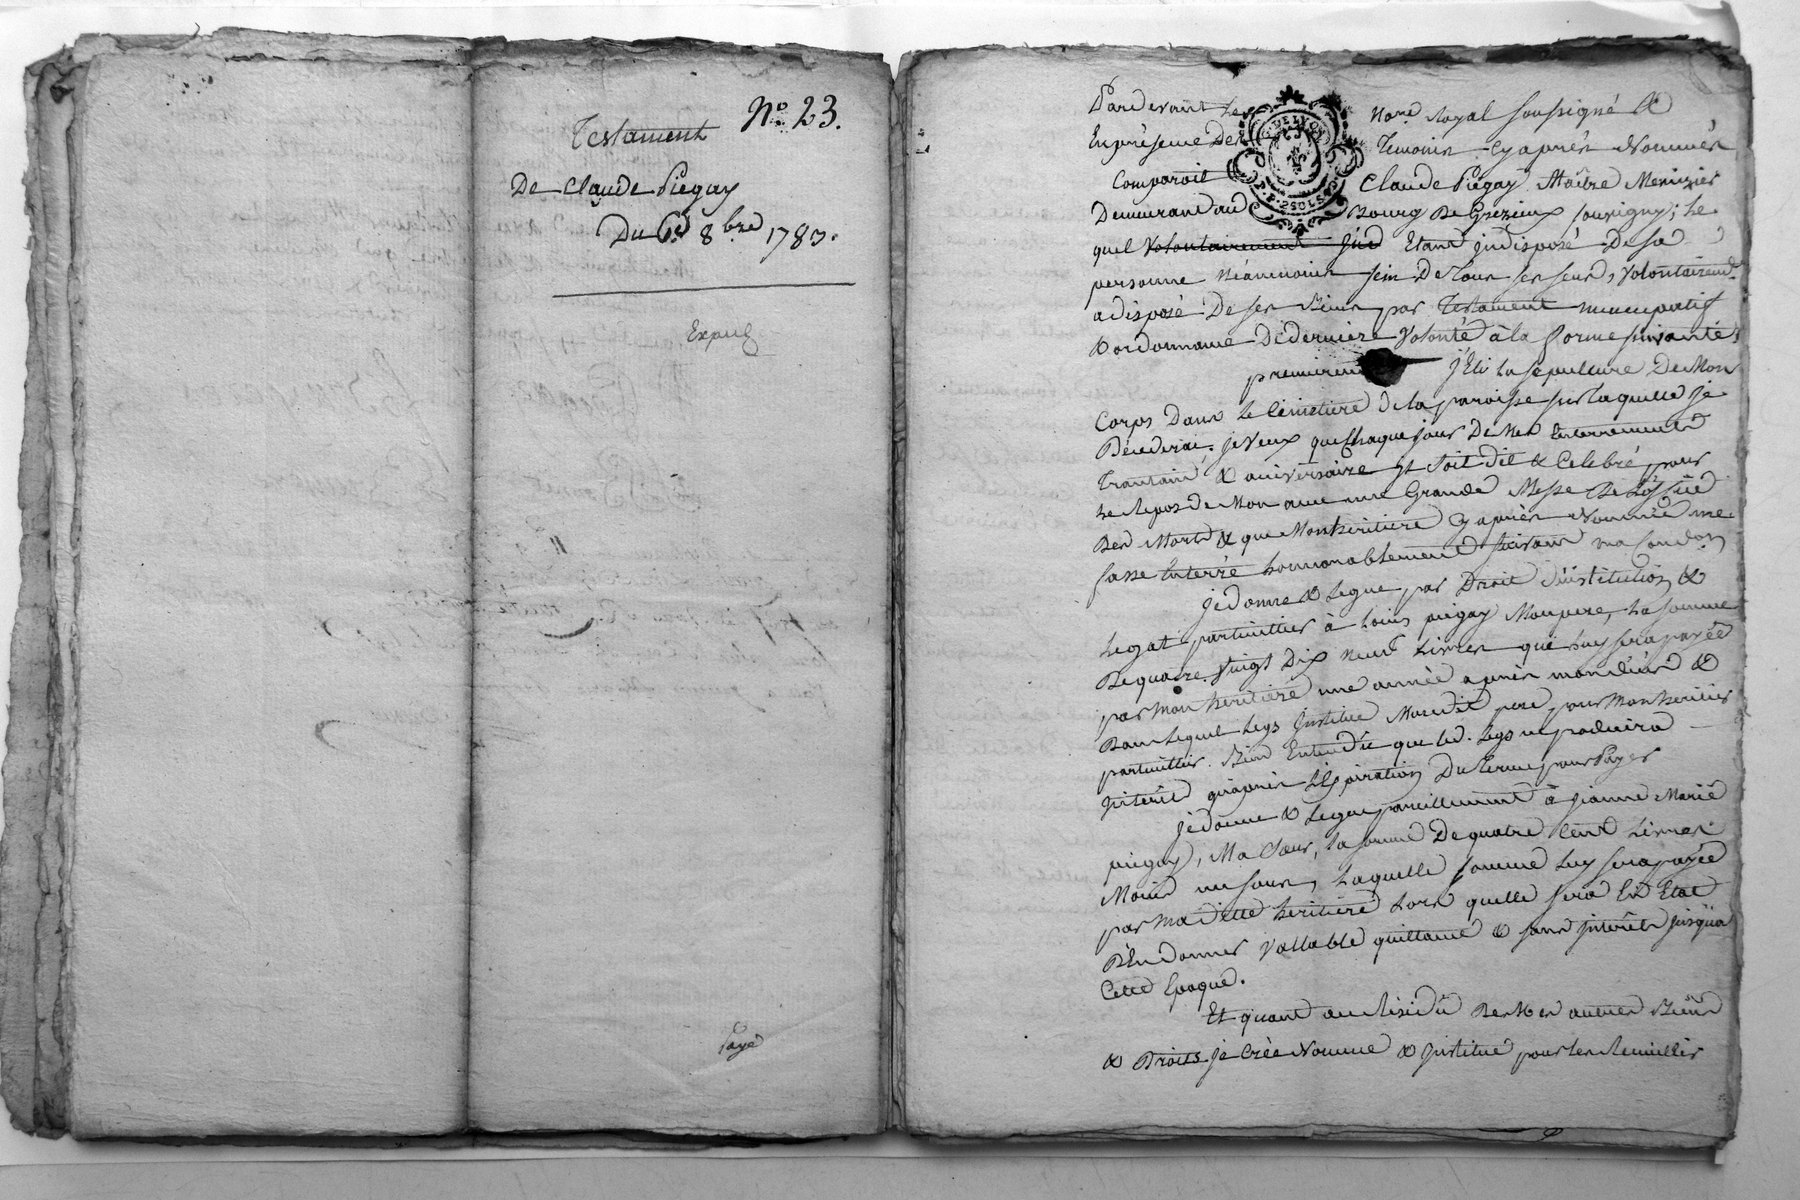 N.o 23.
Testament
De Claude Piegay
Du 8.bre 1783.
Expné
Payé
Pardevant Le Nore Royal soussigné &
En présence Des Temoins cy après Nommés
Comparoit Claude Piegay Maître Menuzier
Demeurand au Bourg De Grezieux souvigny; Le
quel volontairement Etand indisposé De sa
personne Néanmoins sein De tous ses sens, volontairemt
a disposé De ses Biens par Testament nuncupatif
& ordonnance De dernière volonté à la forme suivante,
premierem j'Eli la sépulture De Mon
Corps Dans le Cimetiere De la paroisse sur laquelle je
Décederai, je veux que chaque jour De mes Enterrement
Trantain & aniversaire il soit dit & Celebré pour
Le Repos de Mon ame une Grande Messe De L'office
Des Morts & que Mon heritiere Cy après Nommée me
fasse Enterré honnorablement suivant ma Condon
je donne & Legue par Droit d'institution &
Legat particullier à Louis piegay Mon pere, La somme
De quatre vingt Dix neuf Livres qui luy sera payée
par Mon heritiere une année après mon décéd &
Dans Lequel Legs j'institue Mondit pere pour Mon heritier
particullier. Bien Entendu que led. Legs ne produira
interêt qu'après L'Expiration Du Terme pour Payer
je donne & Legue pareillement à jeanne Marie
piegay, Ma Sœur, La somme De quatre Cent Livres
Moins un sour, Laquelle somme Luy sera payée
par Ma dite heritiere Lors quelle sera En Etat
D'En donner vallable quittance & sans jnterêts jusqu'a
Cette Epoque.
Et quant au Residu De Mes autres Biens
& Droits je Crée Nomme & jnstitue pour Les Recuillir